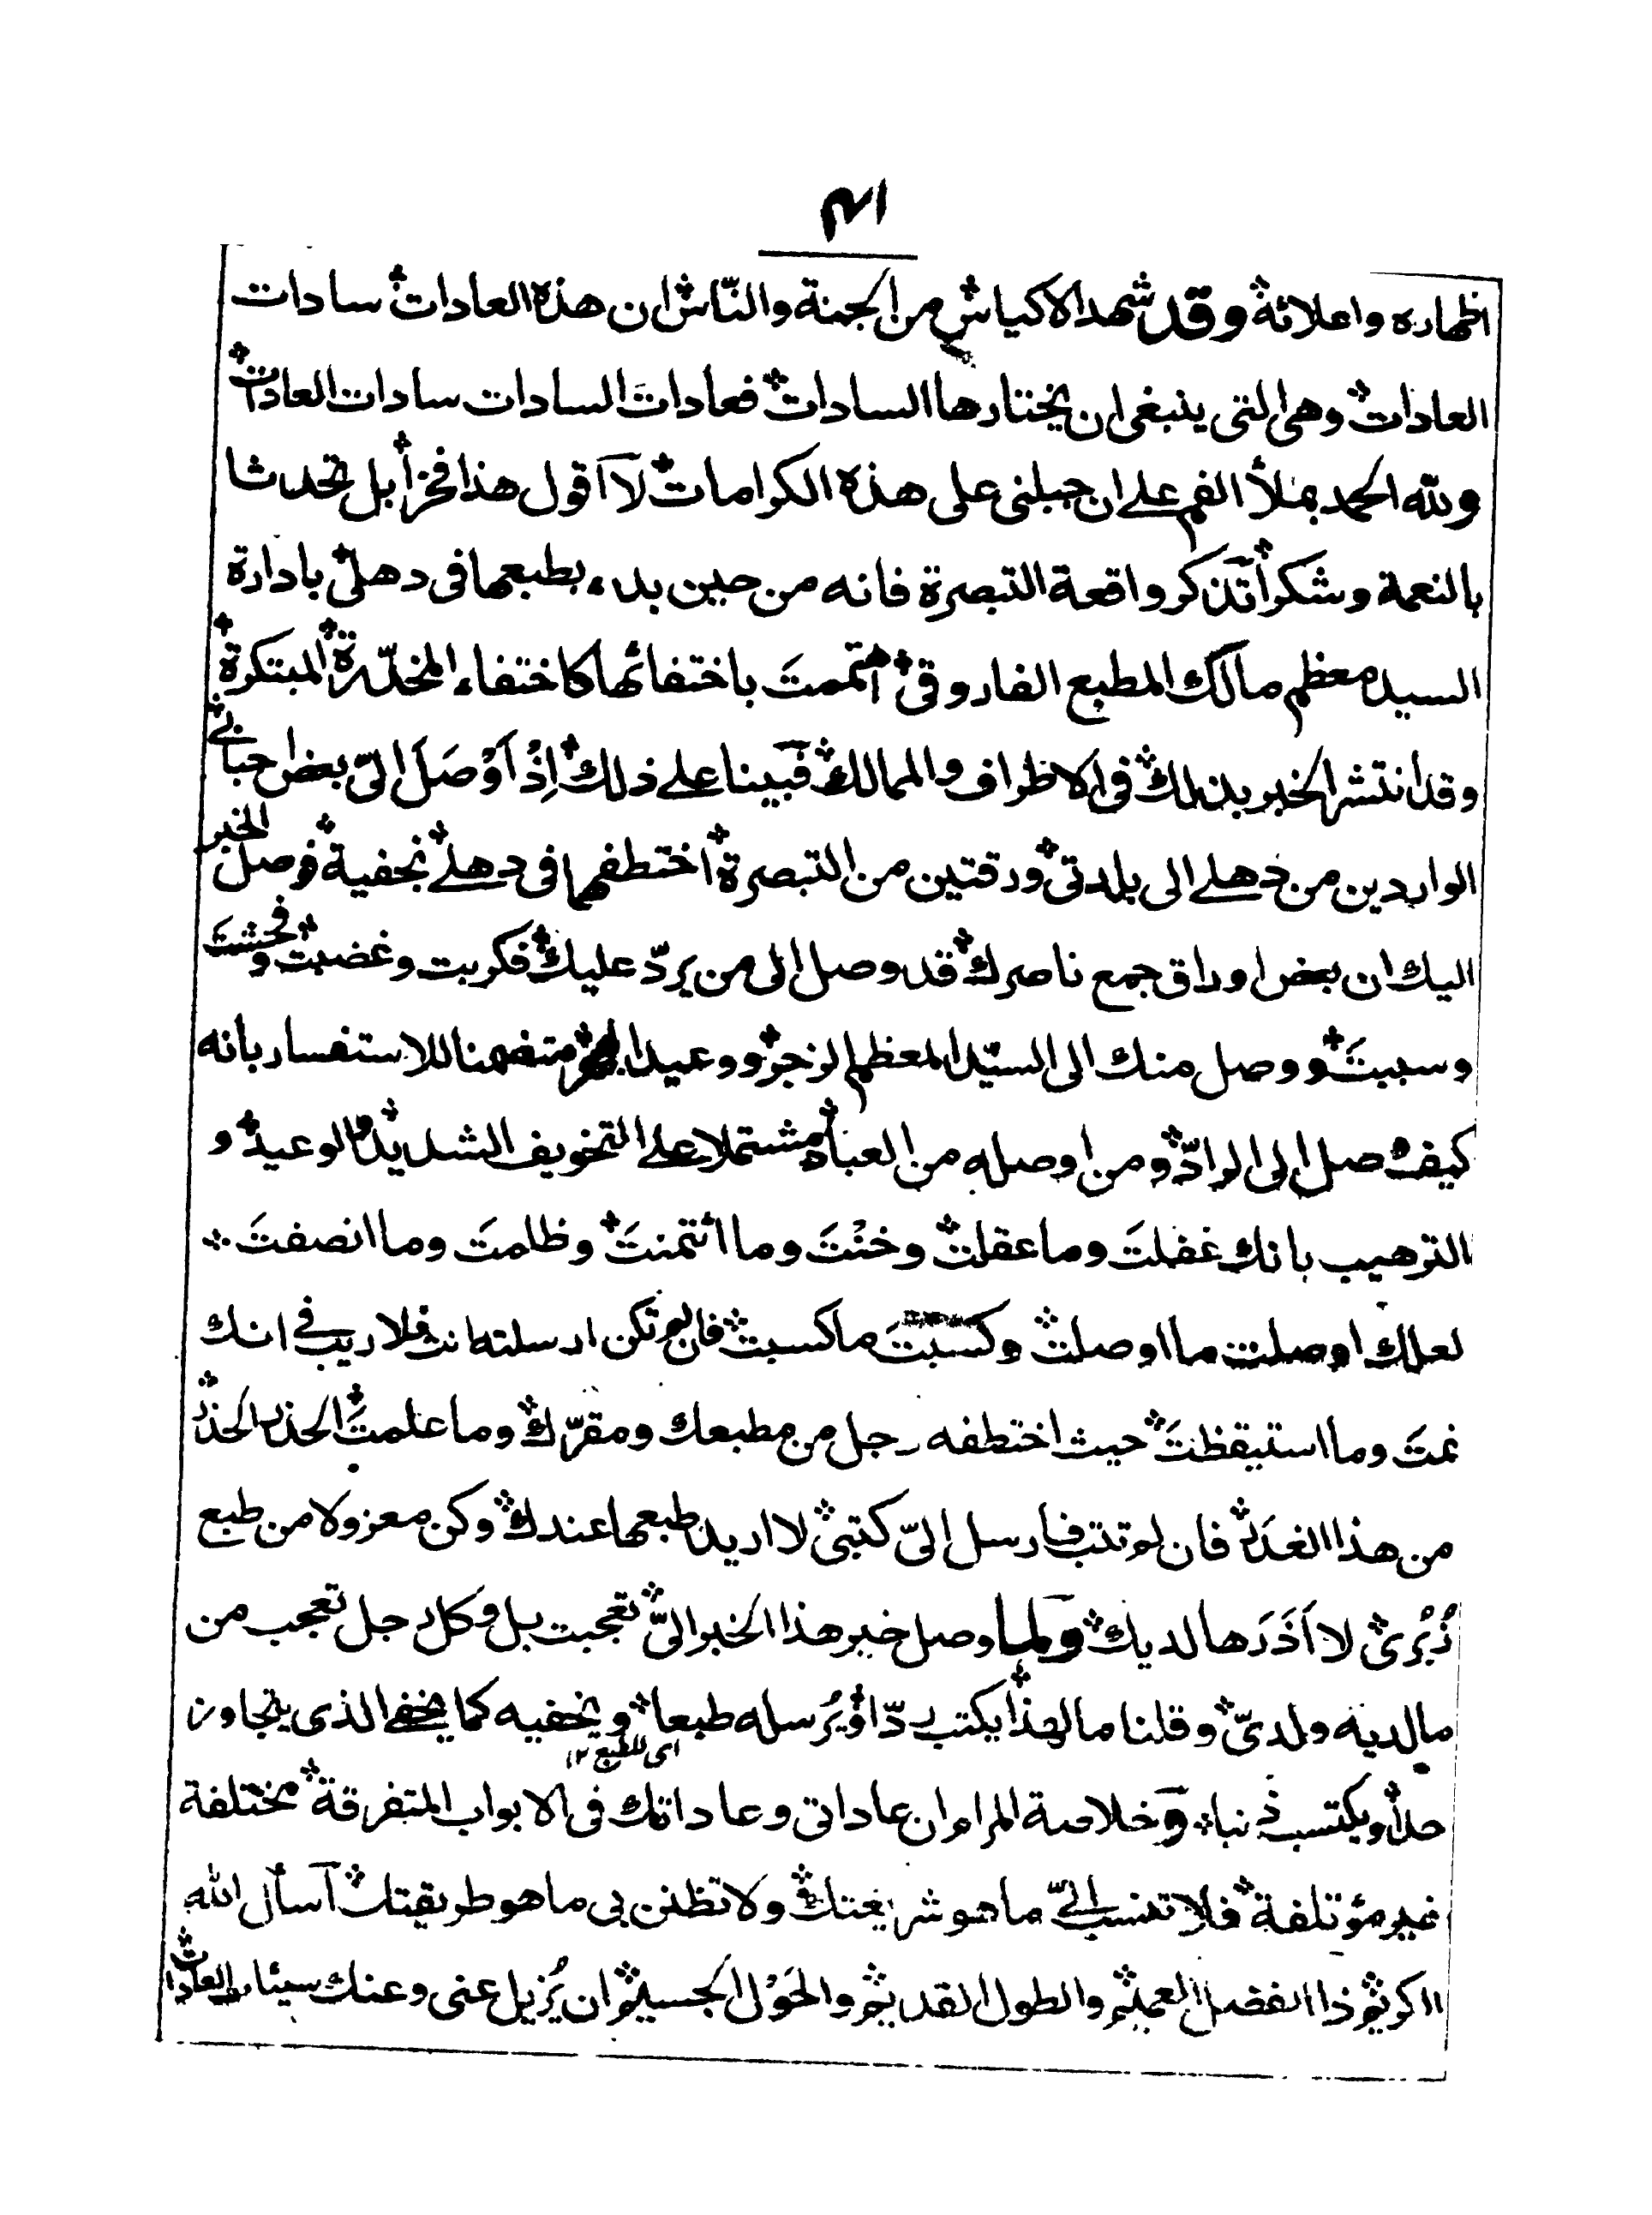 ٤١
اظهاره واعلائه وقد شهد الاكياس من الجنة والناس ان هذه العادات سادات
العادات وهى التى ينبغى ان يختارها السادات فعادات السادات سادات العادات
ولله الحمد بملأ الفم على ان جبلنى على هذه الكرامات لا اقول هذا فخرا بل تحدثا
بالنعمة وشكرا تذكر واقعة التبصرة فانه من حين بدء بطبعها فى دهلى بادارة
السيد معظم مالك المطبع الفاروقى اهتممتَ باختفائها كاختفاء المخدّرة المبتكرة
وقد انتشر الخبر بذلك فى الاطراف والممالك فبينا على ذلك اِذْ اَوْصَلَ الىّ بعض احبابى
الواردين من دهلے الى بلدتى ورقتين من التبصرة اختطفهما فى دهلے بخفية فوصل الخبر
اليك ان بعض اوراق جمع ناصرك قد وصل الى من يردّ عليك فكربت وغضبت وفحشتَ
وسببتَ ووصل منك الى السيّد المعظم الزجر ووعيد متضمنا للاستفسار بانه
كيف وصل الى الرادّ ومن اوصله من العباد مشتملا على التخويف الشديد والوعيد و
الترهيب بانك غفلتَ وما عقلت وخنْتَ وما ائتمنتَ وظلمتَ وما انصفتَ
لعلك اوصلت ما اوصلت وكسبتَ ما كسبت فان لم تكن ارسلته انت فلا ريب فے انك
نمتَ وما استيقظتَ حيث اختطفه رجل من مطبعك ومقرّك وما علمتَ الحذر الحذر
من هذا الغدر فان لم تتب فارسل الىّ كتبى لا اريد طبعها عندك وكن معزولا من طبع
زُبُرى لا اَذَرَها لديك ولما وصل خبر هذا الخبر الىّ تعجبت بل وكل رجل تعجب من
ما لديه ولدىّ وقلنا ما لهذا يكتب ردّا ويُرسله طبعا ويخفيه كما يخفے الذى يتجاوز
اى للطبع ١٢
حدا ويكتسب ذنبا وخلاصة المرام ان عاداتى وعاداتك فى الابواب المتفرقة مختلفة
غير مؤتلفة فلا تنسب الىّ ما هو شريعتك ولا تظنن بى ما هو طريقتك اسأل الله
الكريم ذا الفضل العميم والطول القديم والحَوْل الجسيم ان يُزيل عنى وعنك سيئات العادات